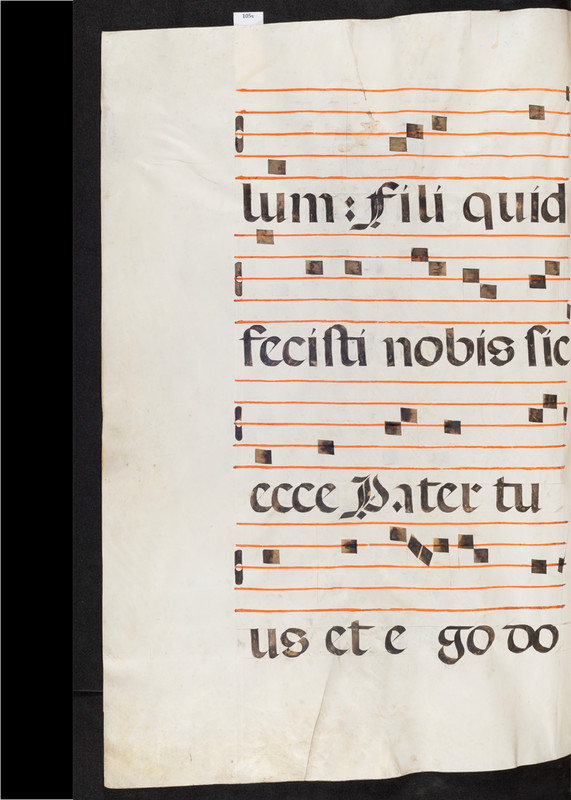 109v
lum: Fili quid
fecisti nobis sic
ecce Pater tu
us et e go do